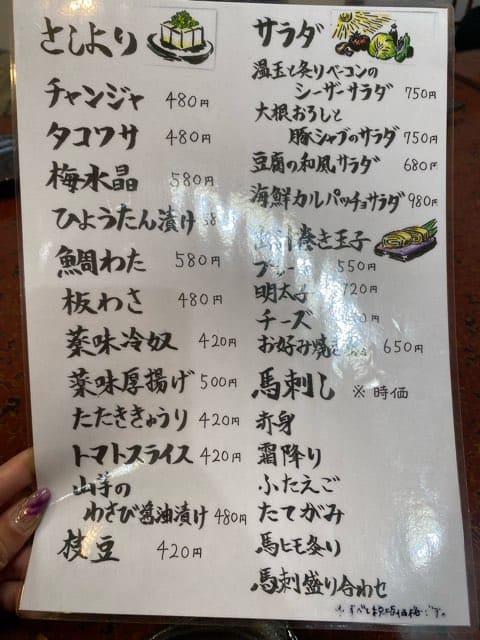 さしより
チャンジャ 480円
タコワサ 480円
梅水晶 580円
ひょうたん漬け
鯛わた 580円
板わさ 480円
薬味冷奴 420円
薬味厚揚げ 500円
たたききゅうり 420円
トマトスライス 420円
山芋の
わさび醤油漬け 480円
枝豆 420円
サラダ
温玉と炙りベーコンの
シーザーサラダ 750円
大根おろしと
豚シャブのサラダ 750円
豆腐の和風サラダ 680円
海鮮カルパッチョサラダ 980円
巻き玉子
550円
明太子 720円
チーズ
お好み焼き 650円
馬刺し ※時価
赤身
霜降り
ふたえご
たてがみ
馬ヒモ炙り
馬刺盛り合わせ